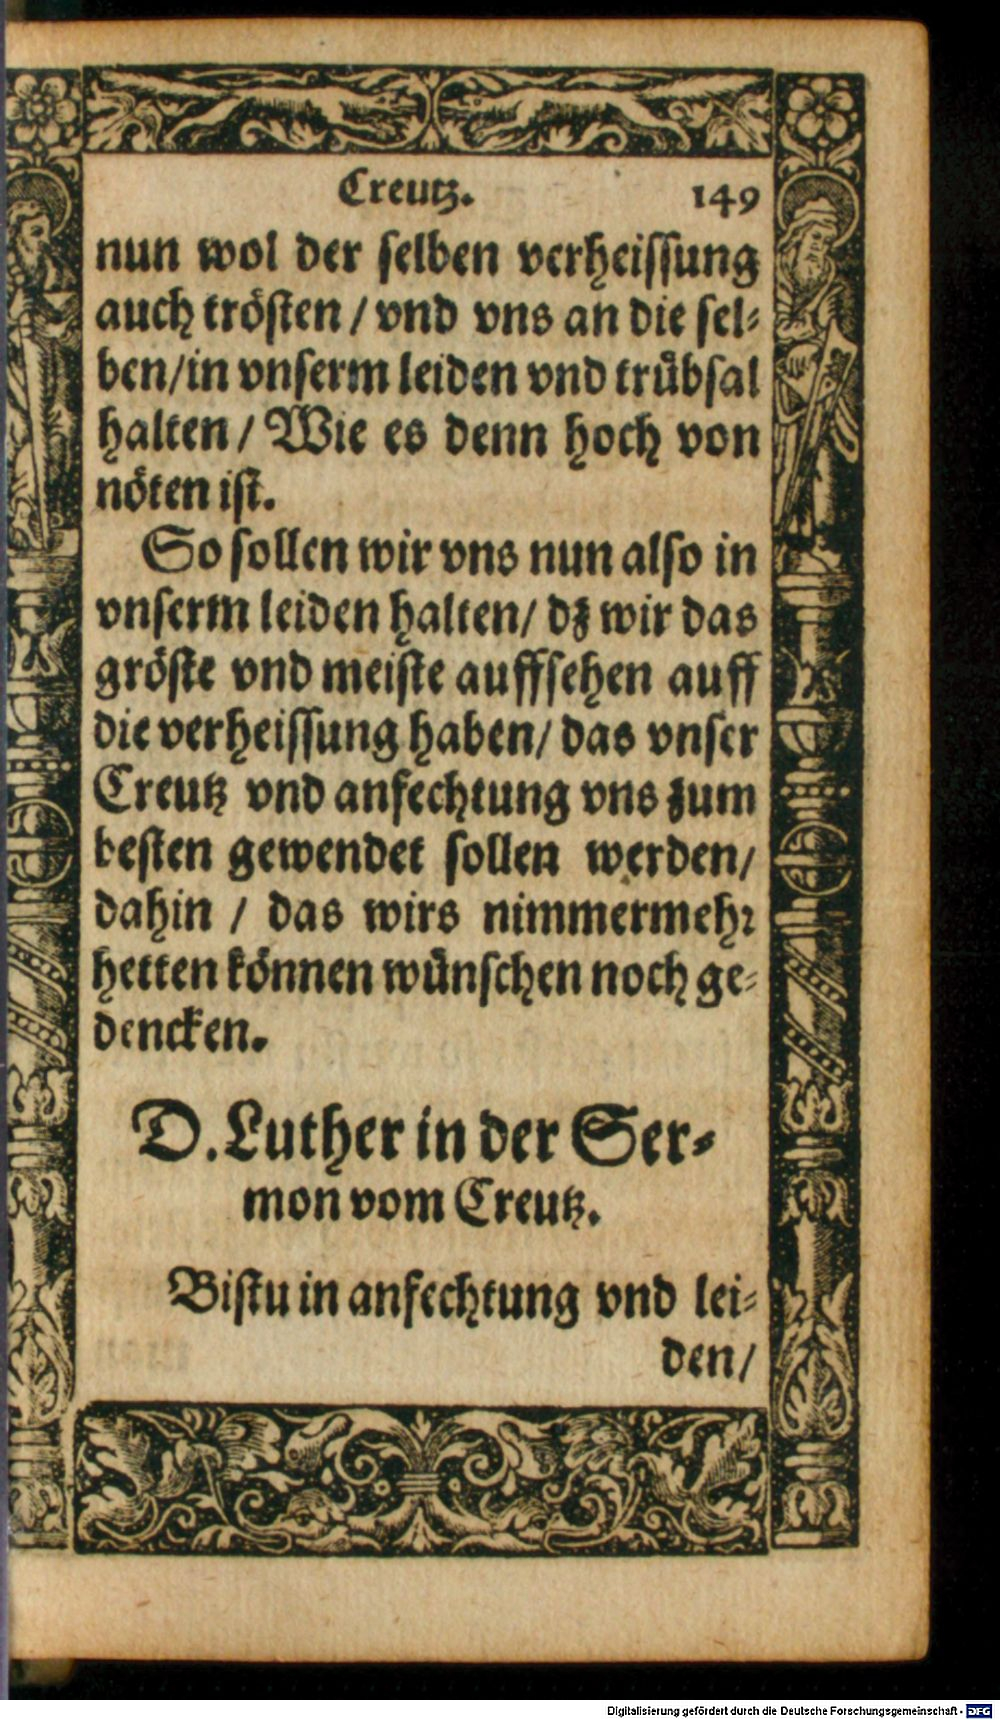 Creutz. 149
nun wol der selben verheissung
auch trösten / vnd vns an die sel-
ben/in vnserm leiden vnd trübsal
halten / Wie es denn hoch von
nöten ist.
So sollen wir vns nun also in
vnserm leiden halten/ dz wir das
gröste vnd meiste auffsehen auff
die verheissung haben/ das vnser
Creutz vnd anfechtung vns zum
besten gewendet sollen werden/
dahin / das wirs nimmermehr
hetten können wünschen noch ge-
dencken.
D. Luther in der Ser-
mon vom Creutz.
Bistu in anfechtung vnd lei-
den/
Digitalisierung gefördert durch die Deutsche Forschungsgemeinschaft - DFG